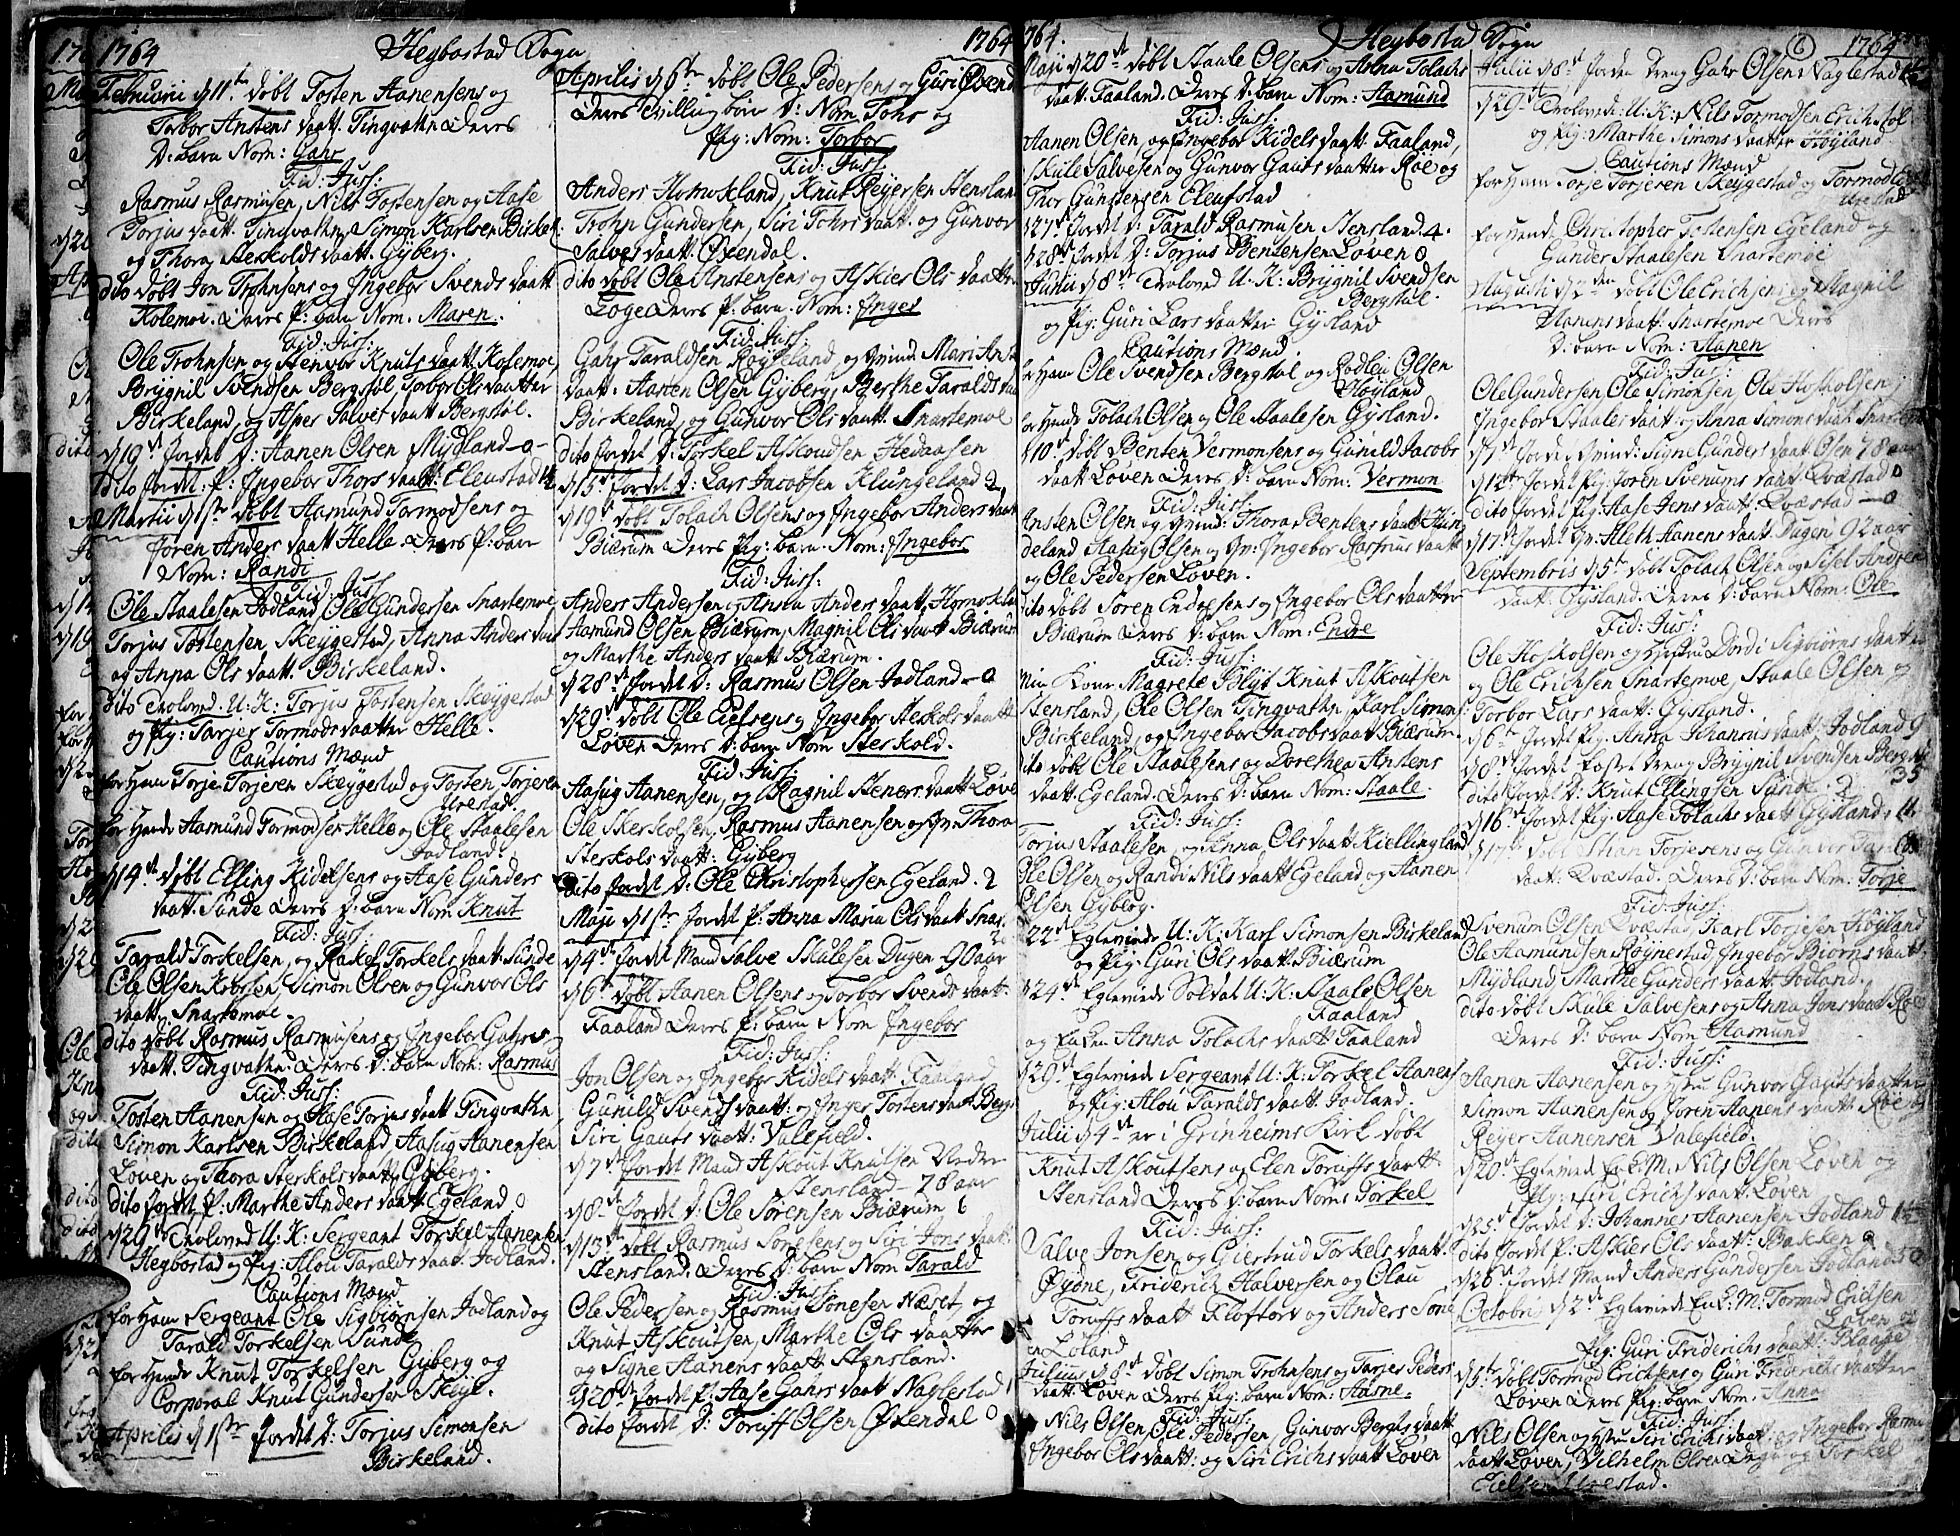 1764 Hegbostad Sogn 1764
Februari d 11te døbt Tosten Aanensens og
Torbor Anstens daatt. Tingvatn Deres
D: barn Nom: Gahr
Fid: Juss:
Rasmus Rasmusen, Nils Tostensen og Aase
Torjus daatt. Tingvatn, Simon Karlsen Birkel.
og Thora Sterkolds daatt. Gyberg.
dito døbt Jon Trohnsens og Ingebor Svends daatt
Kolemoe. Deres P: barn Nom. Maren.
Fid: Juss:
Ole Trohnsen og Stenvor Knuts daatt. Kolemoe,
Brygnil Svendsen Bergstøl Torbor Ols daatter
Birkeland, og Asper Salves daatt Bergstøl.
d 19de Jordet D: Aanen Olsen Mydland 0
dito Jordet P: Ingebor Thors daatt. Eleustad
Martii d 1ste døbt Aamund Tormodsens og
Joren Anders daatt Helle. Deres P: barn
Nom: Randi
Fid: Juss
Ole Staalesen Jodland, Ole Gundersen Snartemoe,
Torjus Tostensen, Skeygestad, Anna Anders daat
og Anna Ols daatt. Birkeland.
dito Trolovet U: K: Torjus Tostensen Skeygestad
og Pig: Tarjer Tormods daatter Helle.
Cautions Mænd
for Ham Torje Torjesen Skeygestad og Tosten Torjesen
Urestad.
for Hende Aamund Tormodsen Helle og Ole Staalesen
Jodland.
d 14de døbt Elling Kidelsens og Aase Gunders
daatt. Sunde Deres D: barn Nom: Knut
Fid: Juss:
Tarald Torkelsen, og Rakel Torkels daatt: Sunde
Ole Olsen Simon Olsen og Gunvor Ols
daatt. Snartemoe.
dito døbt Rasmus Rasmusens og Ingebor Gahrs
daatt. Tingvatn. Deres D: barn Nom: Rasmus
Fid: Juss:
Tosten Aanensen og Aase Torjus daatt Tingvatn
Simon Karlsen Birkeland Aasug Aanensen
Løven og Thora Sterkols daatt. Gyberg.
dito Jordet P: Marthe Anders daatt Egeland 0
d 29de Trolovet U: K: Sergeant Torkel Aanensen
Hegbostad og Pig: Alou Taralds daatt: Jodland.
Cautions Mænd
for Ham Sergeant Ole Sigbiørnsen Jodland og
Tarald Torkelsen Sunde
for Hende Knut Torkelsen Gyberg og
Corporal Knut Gundersen Skeye.
Aprilis d 1ste Jordet D: Torjus Simonsen
Birkeland.
Aprilis d 6te døbt Ole Pedersens og Guri Øxend
Deres Tvilling børn D: Nom Tohr og
Pig: Nom: Torbor
Fid: Juss:
Anders Homokland, Knut Reyersen Stensland
Trohn Gundersen, Siri Tohrs daatt: og Gunvor
Salves daatt. Øxendal.
dito døbt Ole Anstensens og Askier Ols daatter
Løge Deres P: barn. Nom: Inger
Fid: Juss:
Gahr Taraldsen Røyseland, og Qvind: Mari Anst
daatt. Aanen Olsen Gyberg, Berthe Taralds daa
Birkeland, og Gunvor Ols daatt. Snartemoe
dito Jordet D: Torkel Askoudsen Hedaasen
d 15de Jordet D: Lars Jacobsen Klungeland 2
d 19de døbt Tolach Olsens og Ingebor Anders daatt
Biærum Deres Pig: barn. Nom: Ingebor
Fid: Juss:
Anders Andersen og Anna Anders daatt, Homokla
Aamund Olsen Biærum, Magnil Ols daatt Biærum
og Marthe Anders daatt Biærum.
d 28de Jordet D: Rasmus Olsen Jodland 0
d 29de døbt Ole Eielsens og Ingebor Sterkols daatt
Løven Deres D: barn Nom Sterkold.
Fid: Juss:
Aasug Aanensen, og Ragnil Steners daatt Løve
Ole Skerkolsen, Rasmus Aanensen og Thora
Sterkols daatt: Gyberg
Dito Jordet D: Ole Christophersen Egeland. 2
Maji d 1ste Jordet P: Anna Maria Ols daatt Snar
d 4de Jordet Mand Salve Skulesen Dugen 90 aar
d 6te døbt Aanen Olsens og Torbor Svends daatt.
Faaland Deres P: barn Nom Ingebor
Fid: Juss:
Jon Olsen og Ingebor Kidels daatt. Faaland
Gunild Svends daatt: og Inger Tostens daatt Berg
Siri Gauts daatt: Valefield.
d 7de Jordet Mand Askout Knutsen Neder
Stensland 78 aar
d 8de Jordet D: Ole Sørensen Biærum 6
d 13de døbt Rasmus Tønesens og Siri Jons daatt.
Stensland. Deres D: barn Nom Tarald
Fid: Juss:
Ole Pedersen og Rasmus Tønesen Næset, og
Knut Askoutsen, Marthe Ols daatter
og Signe Aanens daatt Stensland.
d 20de Jordet P: Aase Gahrs daatt Naglestad
dito Jordet D: Toruff Olsen Øxendal 0
1764. Heybostad Sogn 6 1764
Maji d 20de døbt Staale Olsens og Anna Tolachs
daatt. Faaland. Deres D: barn Nom: Aamund
Fid: Juss:
Aanen Olsen, og Ingebor Kidels daatt. Faaland,
Skule Salvesen og Gunvor Gauts daatter Røe og
Thor Gunstensen Eleustad
d 27de Jordet D: Tarald Rasmusen Stensland. 4.
d 28de Jordet D: Torjus Bentensen Løven 0
Junii d 8de Trolovet U: K: Brygnil Svendsen
Bergstøl.
og Pig: Guri Lars daatter Gysland
Cautions Mænd
for Ham Ole Svendsen Bergstøl og Rodleu Olsen
Høyland
for Hende Tolach Olsen og Ole Staalesen Gysland.
d 10de døbt Benten Vermonsens og Gunild Jacobs
daatt Løven Deres D: barn Nom: Vermon
Fid: Juss:
Ansten Olsen og Thora Bentens daatt Hun
deland Aasug Olsen og Ingebor Rasmus daatt
og Ole Pedersen Løven.
dito døbt Søren Endresens og Ingebor Ols daatter
Biærum Deres D: barn Nom: Endre
Fid: Juss:
Min Kone Magrete Blyt Knut Askoutsen
Stensland, Ole Olsen Tingvatn, Karl Simons
Birkeland, og Ingebor Jacobs daatt Biærum.
dito døbt Ole Staalesens og Dorethea Anstens
daatt. Egeland. Deres D: barn Nom: Staale.
Fid: Juss:
Torjus Staalesen, og Anna Ols daatt Kiellingland
Ole Olsen og Randi Nils daatt Egeland og Aanen
Olsen Gyberg.
22de Egteviede U: K: Karl Simonsen Birkeland
og Pig: Guri Ols daatt Biærum
d 24de Egteviede Soldat U: K: Staale Olsen
Faaland
og Enken Anna Tolachs daatt Faaland
d 29de Egteviede Sergeant U: K: Torkel Aanens
og Pig: Alou Taralds daatt Jodland.
Julii d 4de er i Grinheims Kirk døbt
Knut Askoutsens og Elen Toruffs daatt.
Stensland Deres D: barn Nom: Torkel
Fid: Juss:
Salve Jonsen og Giertrud Torkels daatt.
Øydne, Friderich Halversen og Olau
Toruffs daatt Kloftord og Anders Tøne
sen Loland
Julius d 8de døbt Simon Trohnsens og Tarjer Peders
daatt. Løven Deres Pig: barn Nom: Aasne.
Fid: Juss:
Nils Olsen, Ole Pedersen, Gunvor Bergtes daatt
Ingebor Ols daatt: og Siri Erichs daatt Løven
Julii d 8de Jorden Dreng Gahr Olsens Naglestad
d 29de Trolovede: U: K: Nils Tormodsen Erichstøl
og Pig: Marthe Simons daatter Høyland
Cautions Mænd
for Ham Torje Torjesen Skeygestad og Tormod
Urestad
for Hende Christopher Tostensen Egeland og
Gunder Staalesen Snartemoe
Augusti d døbt Ole Erichsens og Magnil
Aanens daatt: Snartemoe Deres
D: barn Nom: Aanen
Fid: Juss:
Ole Gundersen, Ole Simonsen, Ole Hoskolsen,
Ingebor Staales daatt. og Anna Simons daatt Snartem
d 7de Jordet Qvind: Signe Gunders daatt Olsen 78 aar
d 12te Jordet Pig: Joren Svenums daatt: Qvæstad 0
dito Jordet Pig: Aase Jens daatt: Qvæstad 0
d 17de Jordet Aleth Aanens daatt Dugen 92 aar
Septembris d 5te døbt Tolach Olsens og Sisel Andrea
daatt. Gysland. Deres D: barn Nom: Ole
Fid: Juss:
Ole Hoskolsen og Hustru Dordi Sigbiørns daatt
og Ole Erichsen Snartemoe, Staale Olsen og
Torbor Lars daatt: Gysland.
d 6te Jordet Pig: Anna Johannis daatt: Jodland 9
d 8de Jordet Dreng Brygnil Svendsen Bergst
35
dito Jordet D: Knut Ellingsen Sunde 2
d 16de Jordet Pig: Aase Tolachs daatt Gysland. 11.
d 17de døbt Torjesens og Gunver
daatt: Qvæstad. Deres D: barn Nom: Torje
Fid: Juss:
Svenum Olsen Qvæstad, Karl Torjesen Høyland
Ole Aamundsen Røynestad, Ingebor Biørns daatt
Mydland, Marthe Gunders daatt: Jodland.
dito døbt Skule Salvesens og Anna Jons daatt Røe
Deres D: barn Nom Aamund
Fid: Juss:
Aanen Aanensen og Gunvor Gauts daatter
Simon Aanensen og Joren Aanens daatt. Røe og
Reyer Aanensen Valefield.
d 20de Egteviede Nils Olsen Løven og
Pig: Siri Erichs daatt: Løven
d 25de Jordet D: Johannes Aanensen Jodland
dito Jordet P: Askier Ols daatt: Bakken 0
d 26de Jordet Mand Anders Gundersen Jodland 50
Octobris d 2de Egteviede Tormod Erichsen
Løven og
Pig: Guri Friderichs daatt: Blaage
d 5te døbt Tormod Erichsens og Guri Friderichs daatter
Løven Deres Pig: barn Nom. Anna
Fid: Juss:
Nils Olsen og Siri Erichs daatt: og Ingebor Rasmu
daatt Løven, Vilhelm Olsen og Torkel
Eielsen Urestad.